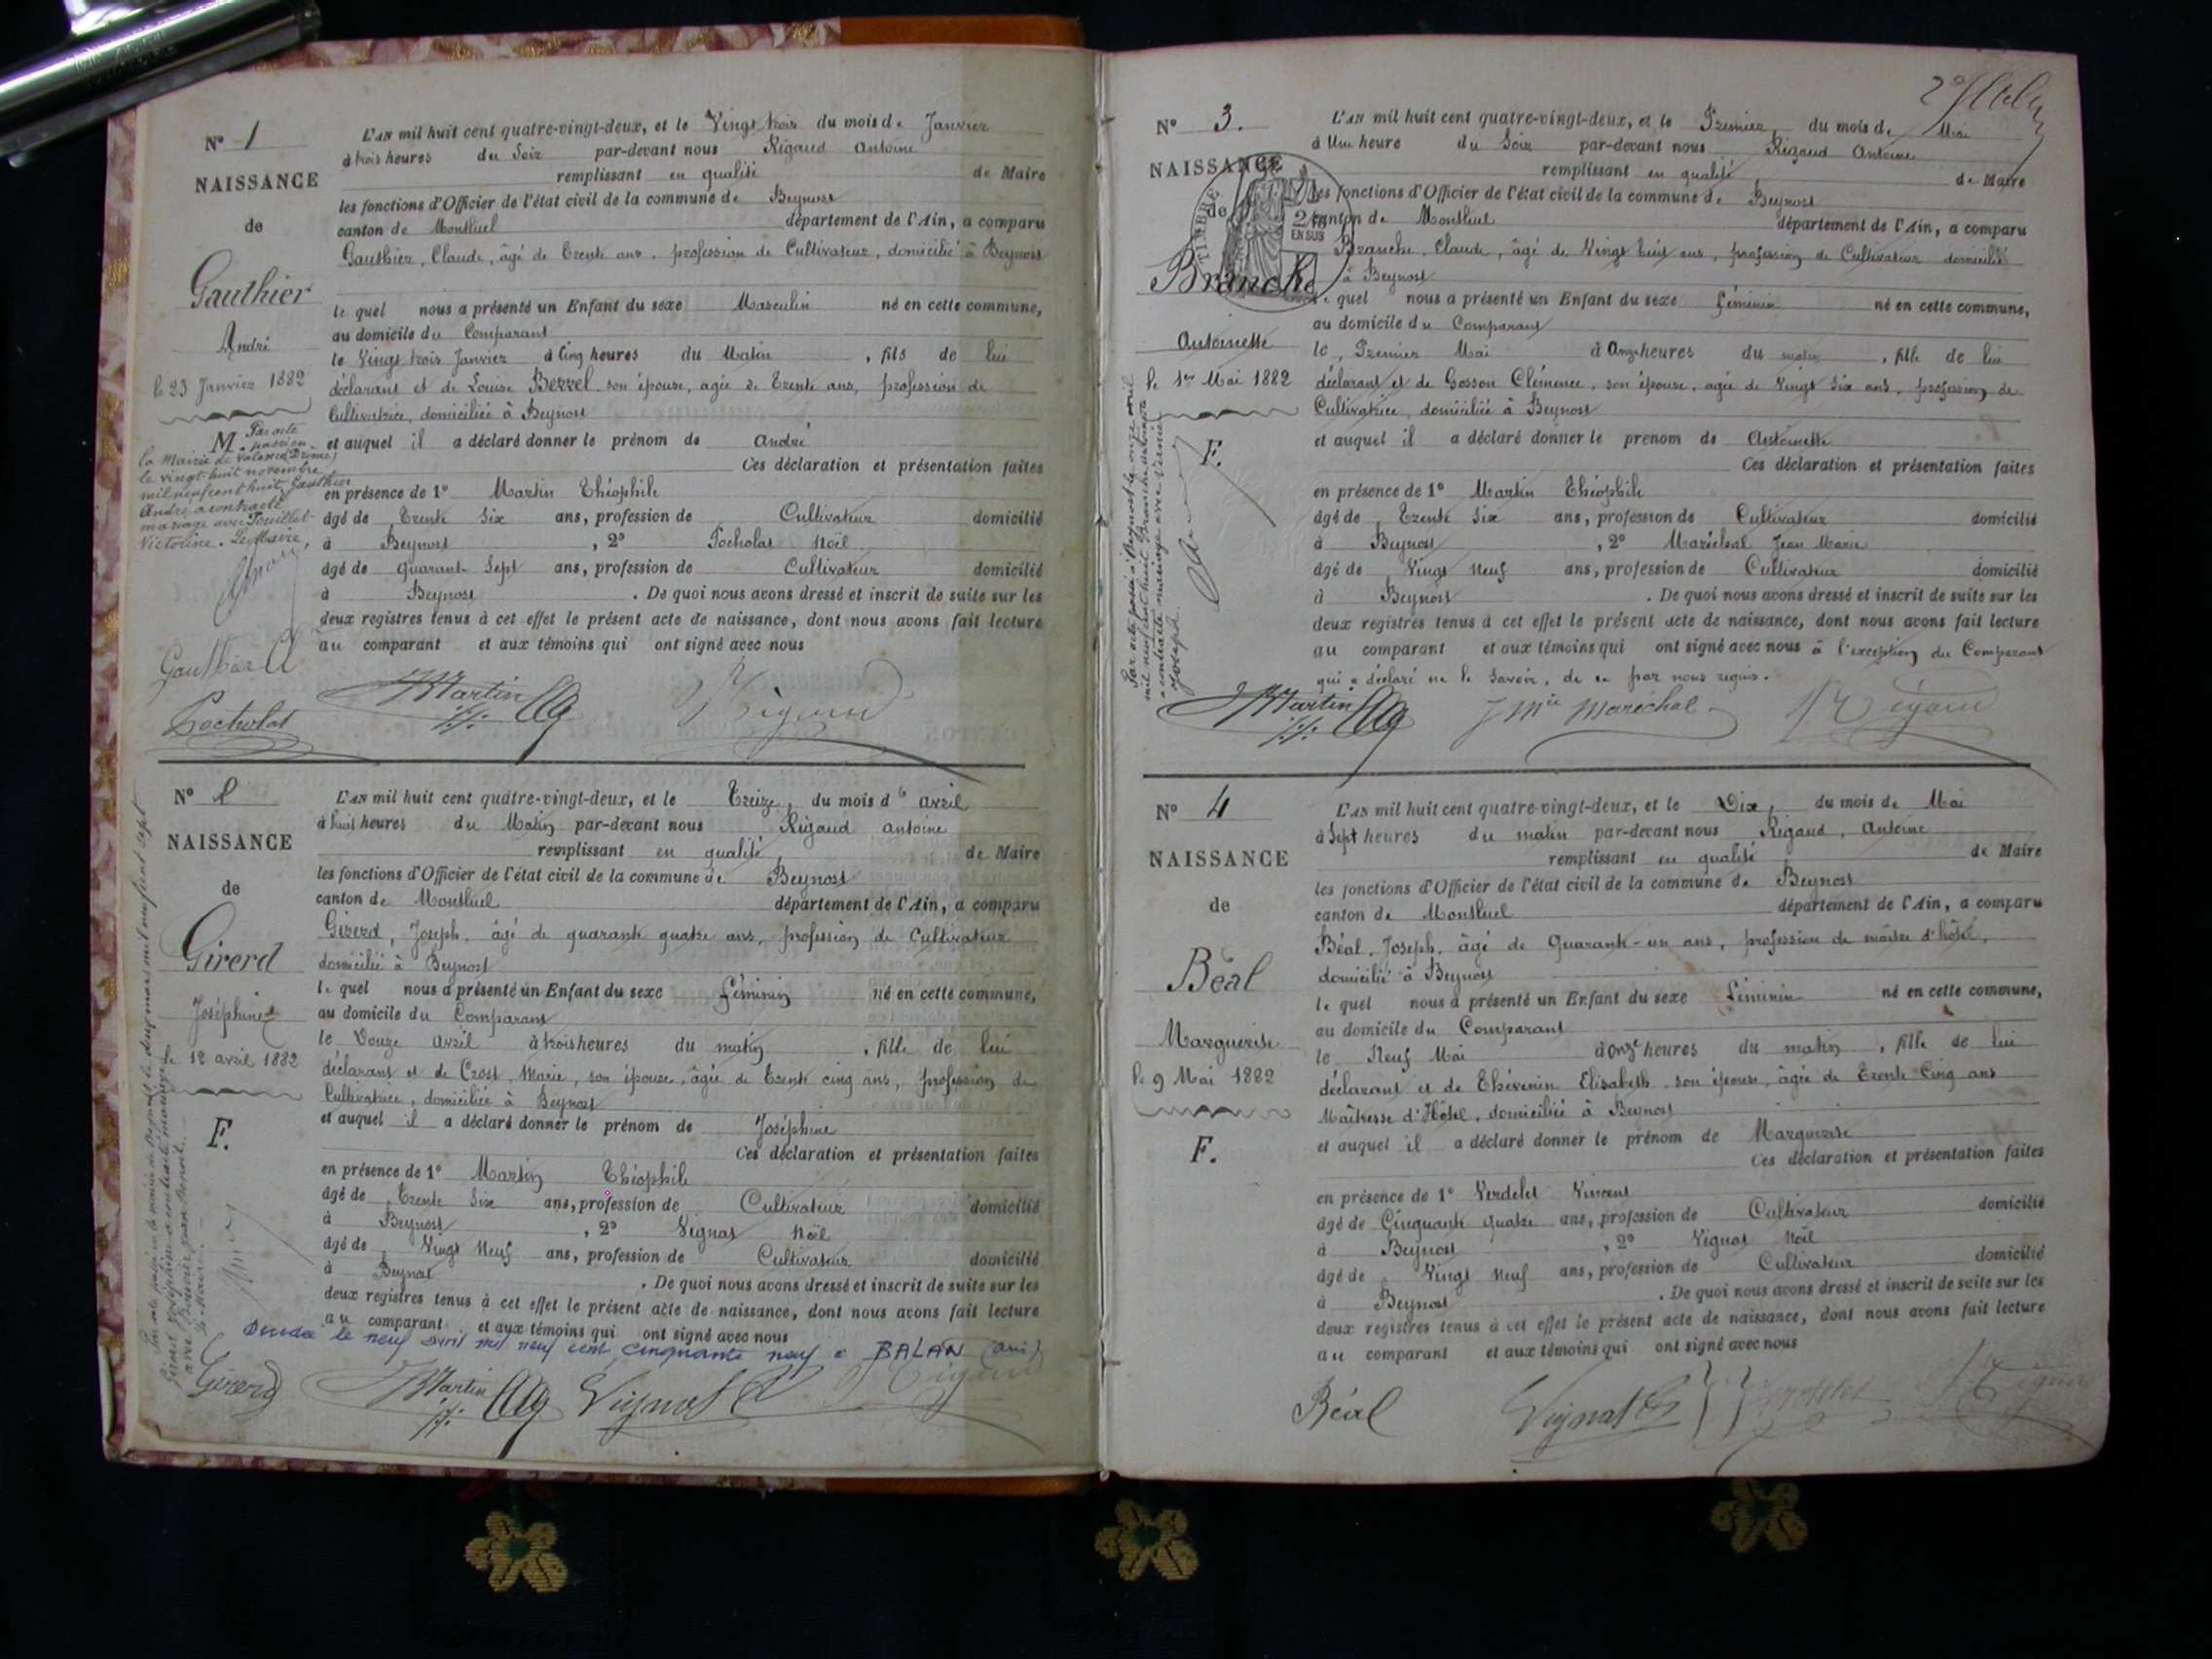 N° 1
NAISSANCE
de
Gauthier
André
le 23 Janvier 1882
M.
Par acte
passé en
la Mairie de Valence (Drôme)
le vingt-huit novembre
mil neuf cent huit, Gauthier
André a contracté
mariage avec
Victorine. Le Maire,
L'AN mil huit cent quatre-vingt-deux, et le Vingt trois du mois de Janvier
à trois heures du Soir par-devant nous Rigaud Antoine
remplissant en qualité de Maire
les fonctions d'Officier de l'état civil de la commune de Beynost
canton de Montluel département de l'Ain, a comparu
Gauthier, Claude, âgé de Trente ans, profession de Cultivateur, domicilié à Beynost
le quel nous a présenté un Enfant du sexe Masculin né en cette commune,
au domicile du Comparant
le Vingt trois Janvier à Cinq heures du Matin, fils de lui
déclarant et de Louise Berrel son épouse, agée de Trente ans, profession de
Cultivatrice, domiciliée à Beynost
et auquel il a déclaré donner le prénom de André
Ces déclaration et présentation faites
en présence de 1° Martin Théophile
âgé de Trente Six ans, profession de Cultivateur domicilié
à Beynost, 2° Pocholat Noël
âgé de quarante Sept ans, profession de Cultivateur domicilié
à Beynost. De quoi nous avons dressé et inscrit de suite sur les
deux registres tenus à cet effet le présent acte de naissance, dont nous avons fait lecture
au comparant et aux témoins qui ont signé avec nous
Gauthier
Pocholat
Martin
Rigaud
N° 2
NAISSANCE
de
Girerd
Joséphine
le 12 avril 1882
F.
L'AN mil huit cent quatre-vingt-deux, et le Treize, du mois d'avril
à huit heures du Matin par-devant nous Rigaud Antoine
remplissant en qualité de Maire
les fonctions d'Officier de l'état civil de la commune de Beynost
canton de Montluel département de l'Ain, a comparu
Girerd, Joseph, âgé de quarante quatre ans, profession de Cultivateur
domicilié à Beynost
le quel nous a présenté un Enfant du sexe Féminin né en cette commune,
au domicile du Comparant
le Douze avril à trois heures du matin, fille de lui
déclarant et de Crost, Marie, son épouse, âgée de Trente cinq ans, profession de
Cultivatrice, domiciliée à Beynost
et auquel il a déclaré donner le prénom de Joséphine
Ces déclaration et présentation faites
en présence de 1° Martin Théophile
âgé de Trente Six ans, profession de Cultivateur domicilié
à Beynost, 2° Vignat Noël
âgé de Vingt Neuf ans, profession de Cultivateur domicilié
à Beynost. De quoi nous avons dressé et inscrit de suite sur les
deux registres tenus à cet effet le présent acte de naissance, dont nous avons fait lecture
au comparant et aux témoins qui ont signé avec nous
Décédée le neuf avril mil neuf cent cinquante neuf à BALAN (Ain)
Girerd
Martin
Vignat
Rigaud
N° 3.
NAISSANCE
de
Branche
Antoinette
le 1er Mai 1882
F.
TIMBRE
2/10
EN SUS
L'AN mil huit cent quatre-vingt-deux, et le Premier, du mois de Mai
à Une heure du Soir par-devant nous Rigaud Antoine
remplissant en qualité de Maire
les fonctions d'Officier de l'état civil de la commune de Beynost
canton de Montluel département de l'Ain, a comparu
Branche, Claude, âgé de Vingt huit ans, profession de Cultivateur domicilié
à Beynost
le quel nous a présenté un Enfant du sexe Féminin né en cette commune,
au domicile du Comparant
le, Premier Mai à Onze heures du matin, fille de lui
déclarant et de Gosson Clémence, son épouse, agée de Vingt Six ans, profession de
Cultivatrice, domiciliée à Beynost
et auquel il a déclaré donner le prénom de Antoinette
Ces déclaration et présentation faites
en présence de 1° Martin Théophile
âgé de Trente Six ans, profession de Cultivateur domicilié
à Beynost, 2° Maréchal Jean Marie
âgé de Vingt Neuf ans, profession de Cultivateur domicilié
à Beynost. De quoi nous avons dressé et inscrit de suite sur les
deux registres tenus à cet effet le présent acte de naissance, dont nous avons fait lecture
au comparant et aux témoins qui ont signé avec nous à l'exception du Comparant
qui a déclaré ne le Savoir, de ce par nous requis.
Martin
J Mie Maréchal
Rigaud
N° 4
NAISSANCE
de
Béal
Marguerite
le 9 Mai 1882
F.
L'AN mil huit cent quatre-vingt-deux, et le Dix, du mois de Mai
à Sept heures du matin par-devant nous Rigaud, Antoine
remplissant en qualité de Maire
les fonctions d'Officier de l'état civil de la commune de Beynost
canton de Montluel département de l'Ain, a comparu
Béal, Joseph, âgé de Quarante-un ans, profession de maître d'hôtel,
domicilié à Beynost
le quel nous a présenté un Enfant du sexe Féminin né en cette commune,
au domicile du Comparant
le Neuf Mai à onze heures du matin, fille de lui
déclarant et de Thévenin Elisabeth, son épouse, âgée de Trente Cinq ans
Maîtresse d'Hôtel, domiciliée à Beynost
et auquel il a déclaré donner le prénom de Marguerite
Ces déclaration et présentation faites
en présence de 1° Verdelet Vincent
âgé de Cinquante quatre ans, profession de Cultivateur domicilié
à Beynost, 2° Vignat Noël
âgé de Vingt Neuf ans, profession de Cultivateur domicilié
à Beynost. De quoi nous avons dressé et inscrit de suite sur les
deux registres tenus à cet effet le présent acte de naissance, dont nous avons fait lecture
au comparant et aux témoins qui ont signé avec nous
Béal
Vignat
Rigaud